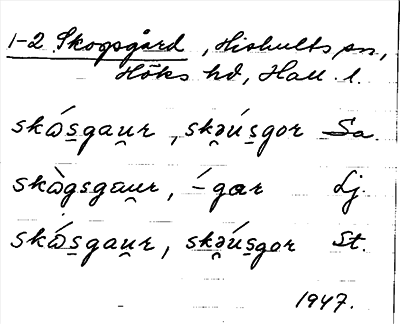 1-2 Skogsgård, Hishults sn,
Höks hd, Hall. l.
skɷ́s̠gau̯r, skə̯ús̠gor Sa.
skɷ̀gsgau̯r, ´-gar Lj.
skɷ́s̠gau̯r, skə̯ús̠gor St.
1947.